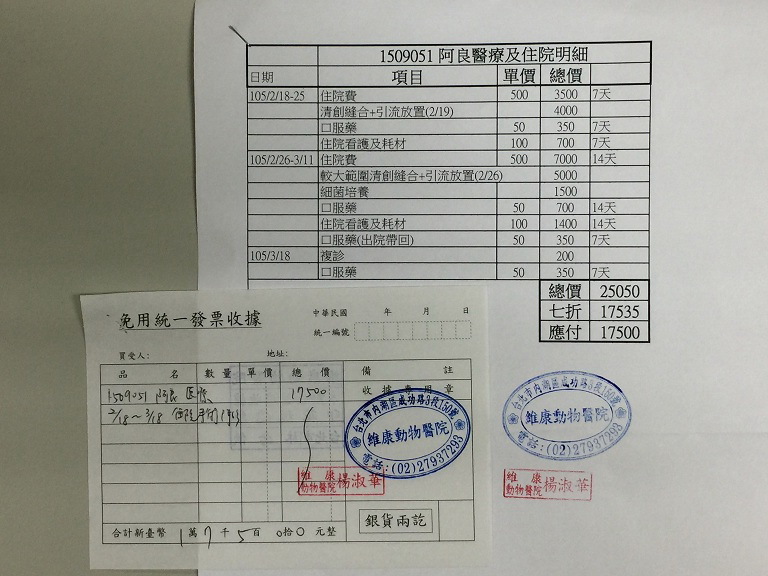 1509051 阿良醫療及住院明細
日期 項目 單價 總價
105/2/18-25 住院費 500 3500 7天
清創縫合+引流放置(2/19) 4000
口服藥 50 350 7天
住院看護及耗材 100 700 7天
105/2/26-3/11 住院費 500 7000 14天
較大範圍清創縫合+引流放置(2/26) 5000
細菌培養 1500
口服藥 50 700 14天
住院看護及耗材 100 1400 14天
口服藥(出院帶回) 50 350 7天
105/3/18 複診 200
口服藥 50 350 7天
總價 25050
七折 17535
應付 17500
免用統一發票收據
中華民國 年 月 日
統一編號
買受人: 地址:
品名 數量 單價 總價 備註
收據專用章
1509051 阿良 医療 17500
2/18~3/18 住院
台北市內湖區成功路3段150號
維康動物醫院
電話:(02)27937293
維康動物醫院 楊淑華
銀貨兩訖
合計新臺幣 1萬7千5百0拾0元整
台北市內湖區成功路3段150號
維康動物醫院
電話:(02)27937293
維康動物醫院 楊淑華